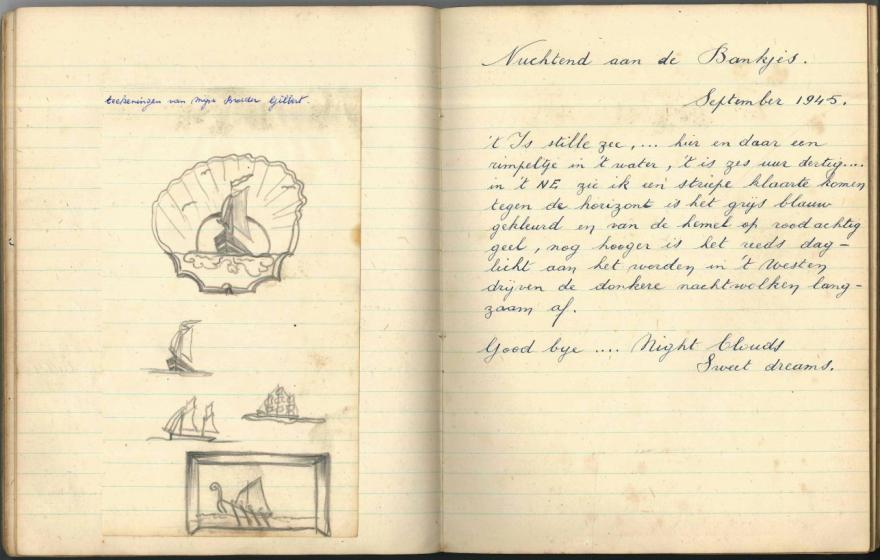 teekeningen van mijn broeder Gilbert.
Nuchtend aan de Bankjes.
September 1945.
't Is stille zee, ... hier en daar een
rimpeltje in 't water, 't is zes uur dertig....
in 't NE zie ik een striepe klaarte komen
tegen de horizont is het grijs blauw
gekleurd en van de hemel op roodachtig
geel, nog hooger is het reeds dag-
licht aan het worden in 't Westen
drijven de donkere nachtwolken lang-
zaam af.
Good bye .... Night Clouds
Sweet dreams.